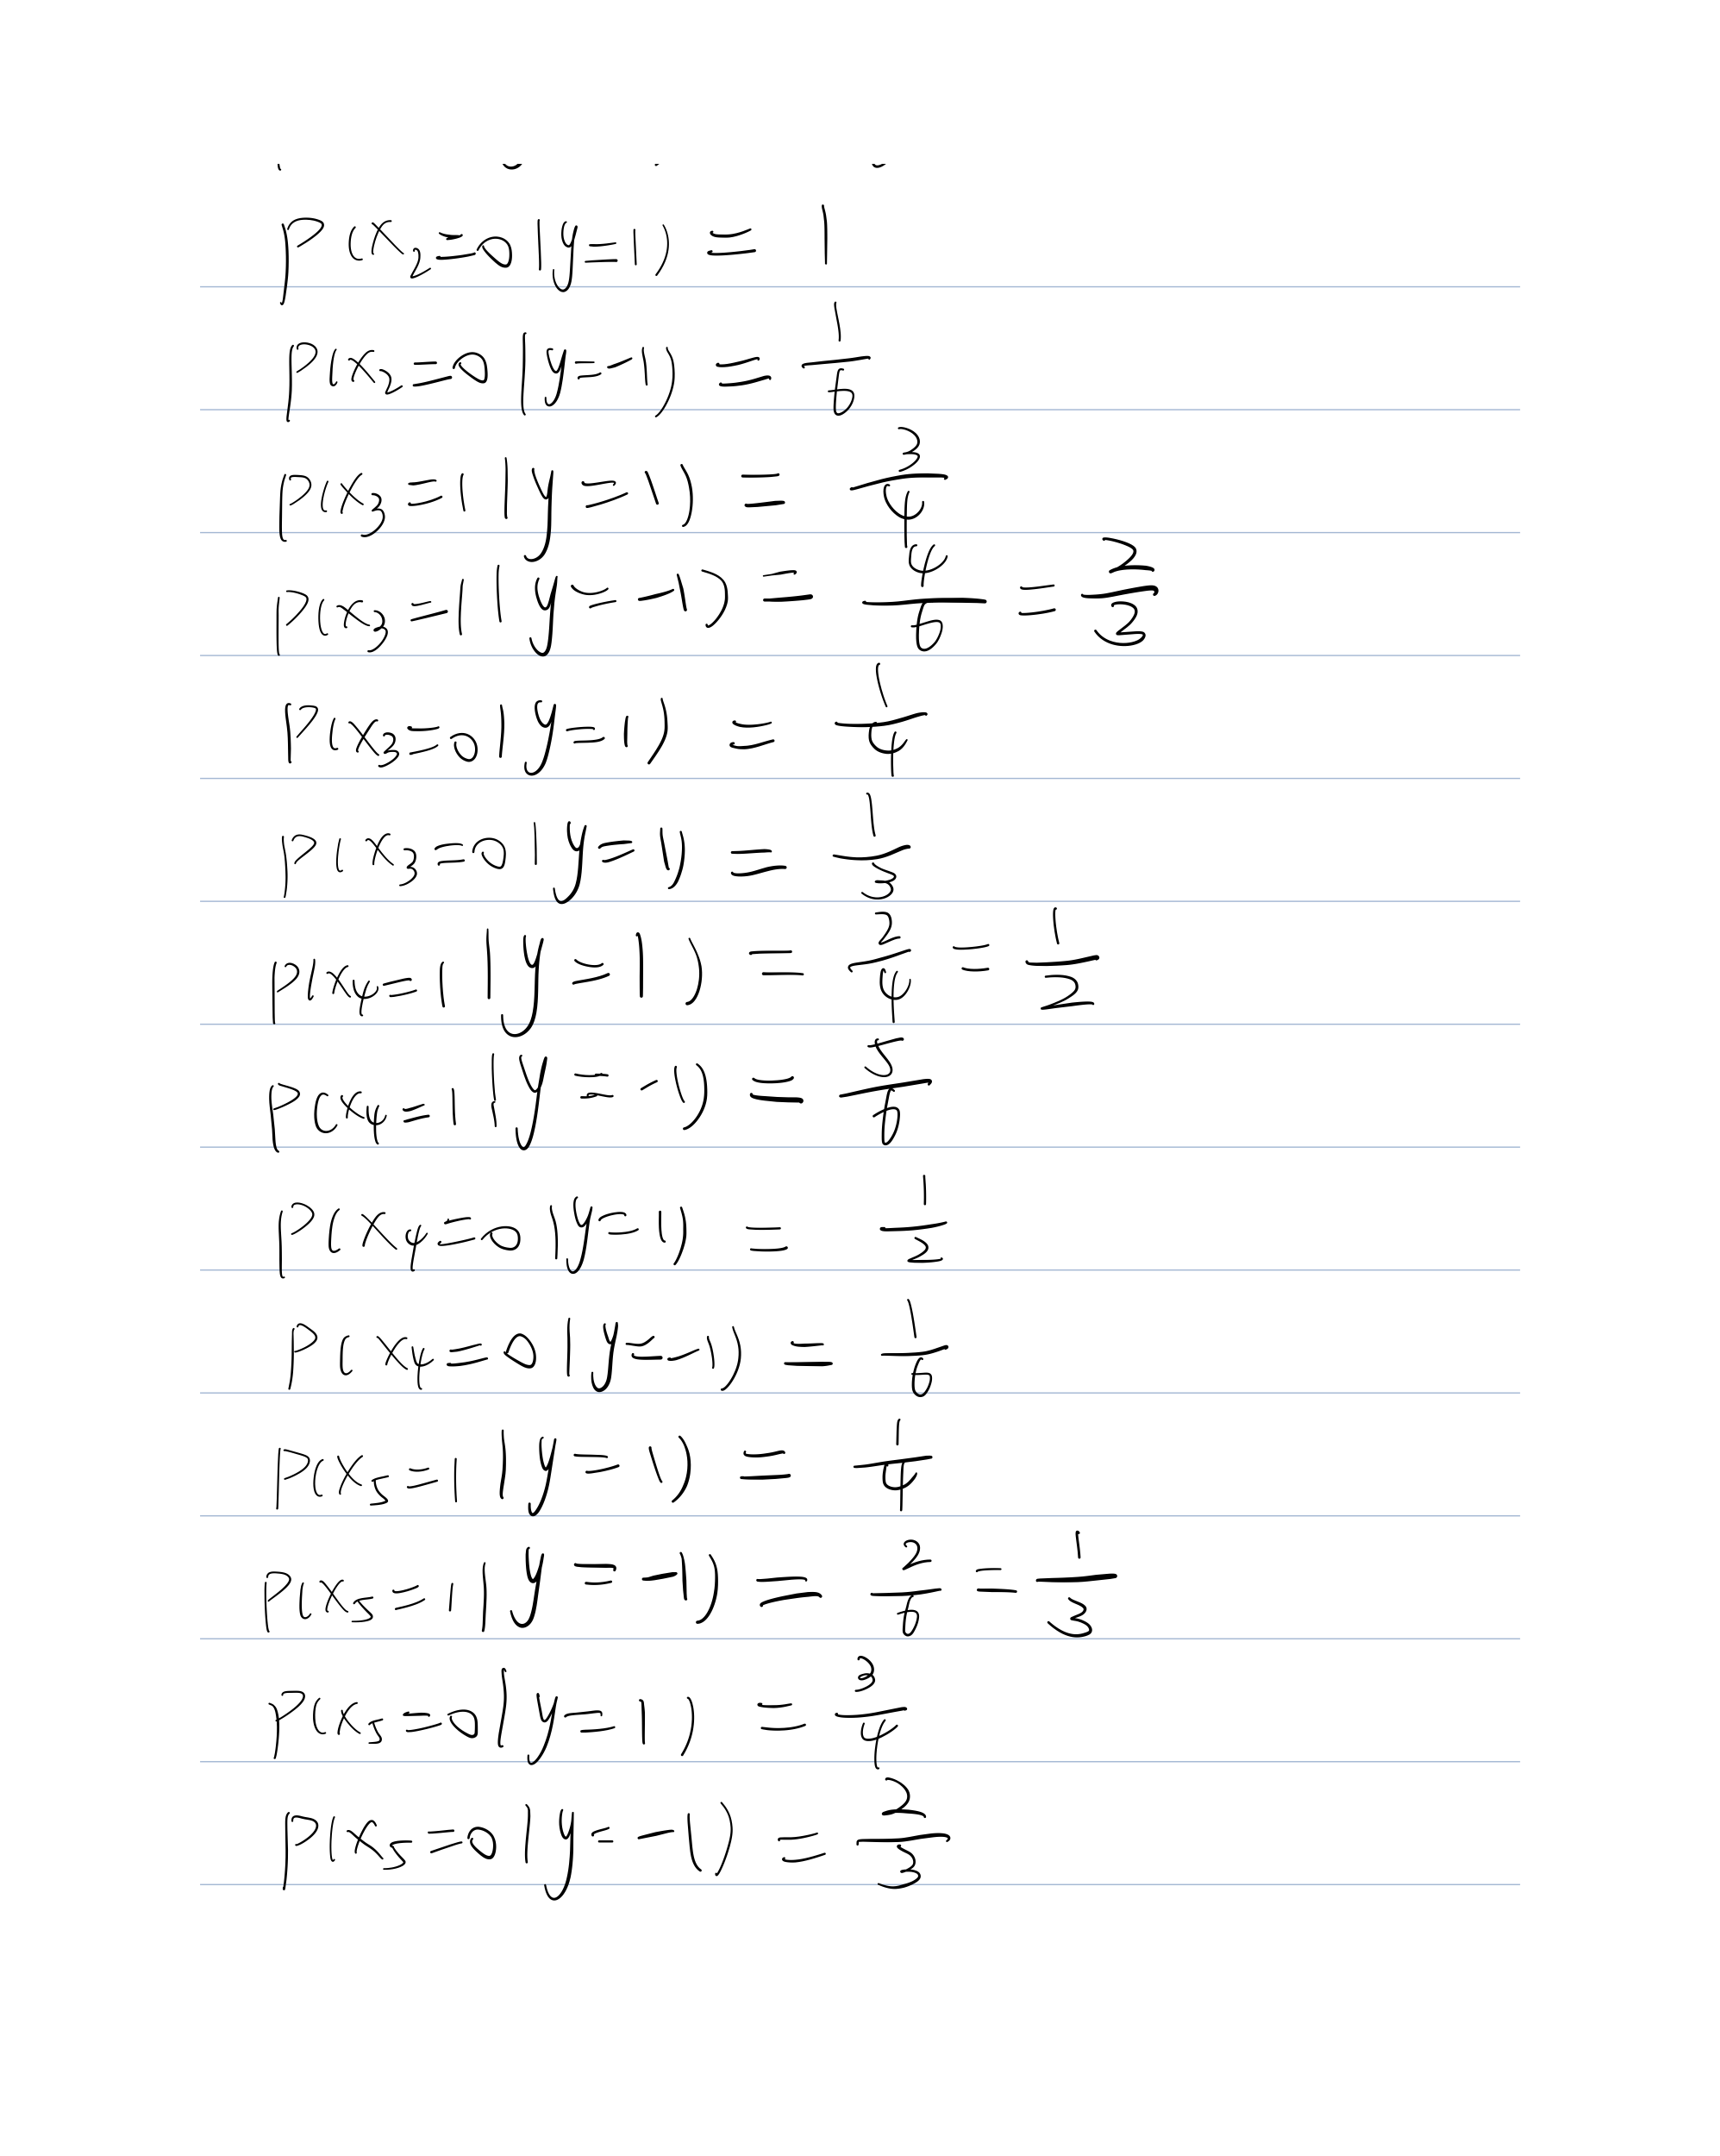 P(x₂=0|y=1) = 1
P(x₂=0|y=-1) = 1/6
P(x₃=1|y=1) = 3/4
P(x₃=1|y=-1) = 4/6 = 2/3
P(x₃=0|y=1) = 1/4
P(x₃=0|y=1) = 1/3
P(x₄=1|y=1) = 2/4 = 1/2
P(x₄=1|y=-1) = 5/6
P(x₄=0|y=1) = 1/2
P(x₄=0|y=-1) = 1/6
P(x₅=1|y=1) = 1/4
P(x₅=1|y=-1) = 2/6 = 1/3
P(x₅=0|y=1) = 3/4
P(x₅=0|y=-1) = 2/3